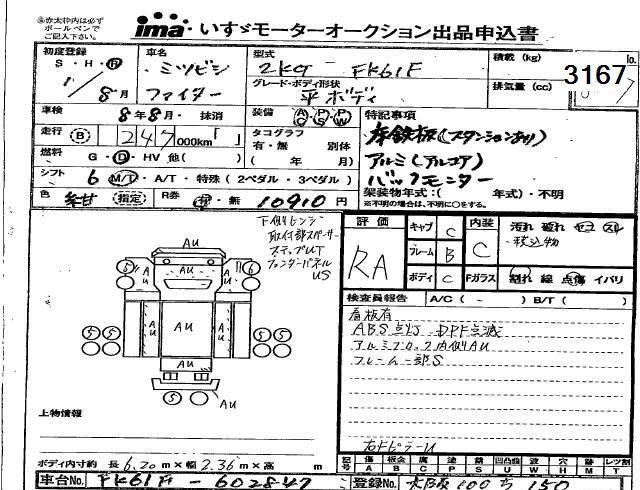 ※赤太枠内は必ず
ボールペンで
ご記入下さい。
ima いすゞモーターオークション出品申込書
初度登録 S・H・R 1/8月
車名 ミツビシ ファイター
型式 2KG - FK61F
グレード・ボディ形状 平ボディ
積載 (kg)
排気量 (cc)
No. 3167
車検 8年8月・抹消
装備 A/C P/S P/W
走行 B 247,000km「 」
タコグラフ 有・無 別体 ( 年 月)
燃料 G・D・HV 他( )
シフト 6 M/T・A/T・特殊(2ペダル・3ペダル)
色 紺 指定 R券 有・無 10910円
特記事項
床鉄板(スタンションあり)
アルミ(アルコア)
バックモニター
架装物年式:( 年式)・不明
※不明の場合は、不明に○をする。
下側ヒンジ
取付部スペーサー
ステップUT
フェンダーパネル
US
評価 RA
キャブ C
フレーム B
ボディ C
内装 C
Fガラス
汚れ 破れ セコ スレ
積込物
割れ 線 点傷 イバリ
検査員報告 A/C ( - ) B/T ( )
看板有
ABS点灯 DPF点滅
アルミブロック内側AU
フレーム一部S
右ドピラーU
AU
6 AU AU 6
AU AU AU
5 5 5 5
AU
5 AU
上物情報
ボディ内寸約 長 6.20m×幅 2.36m×高 m
記号 傷A 板金B 腐C 塗P 錆S 凹凸曲U 波W 穴H 跡M レンズ割T
車台No. FK61F - 602847
登録No. 大阪 100 ち 150